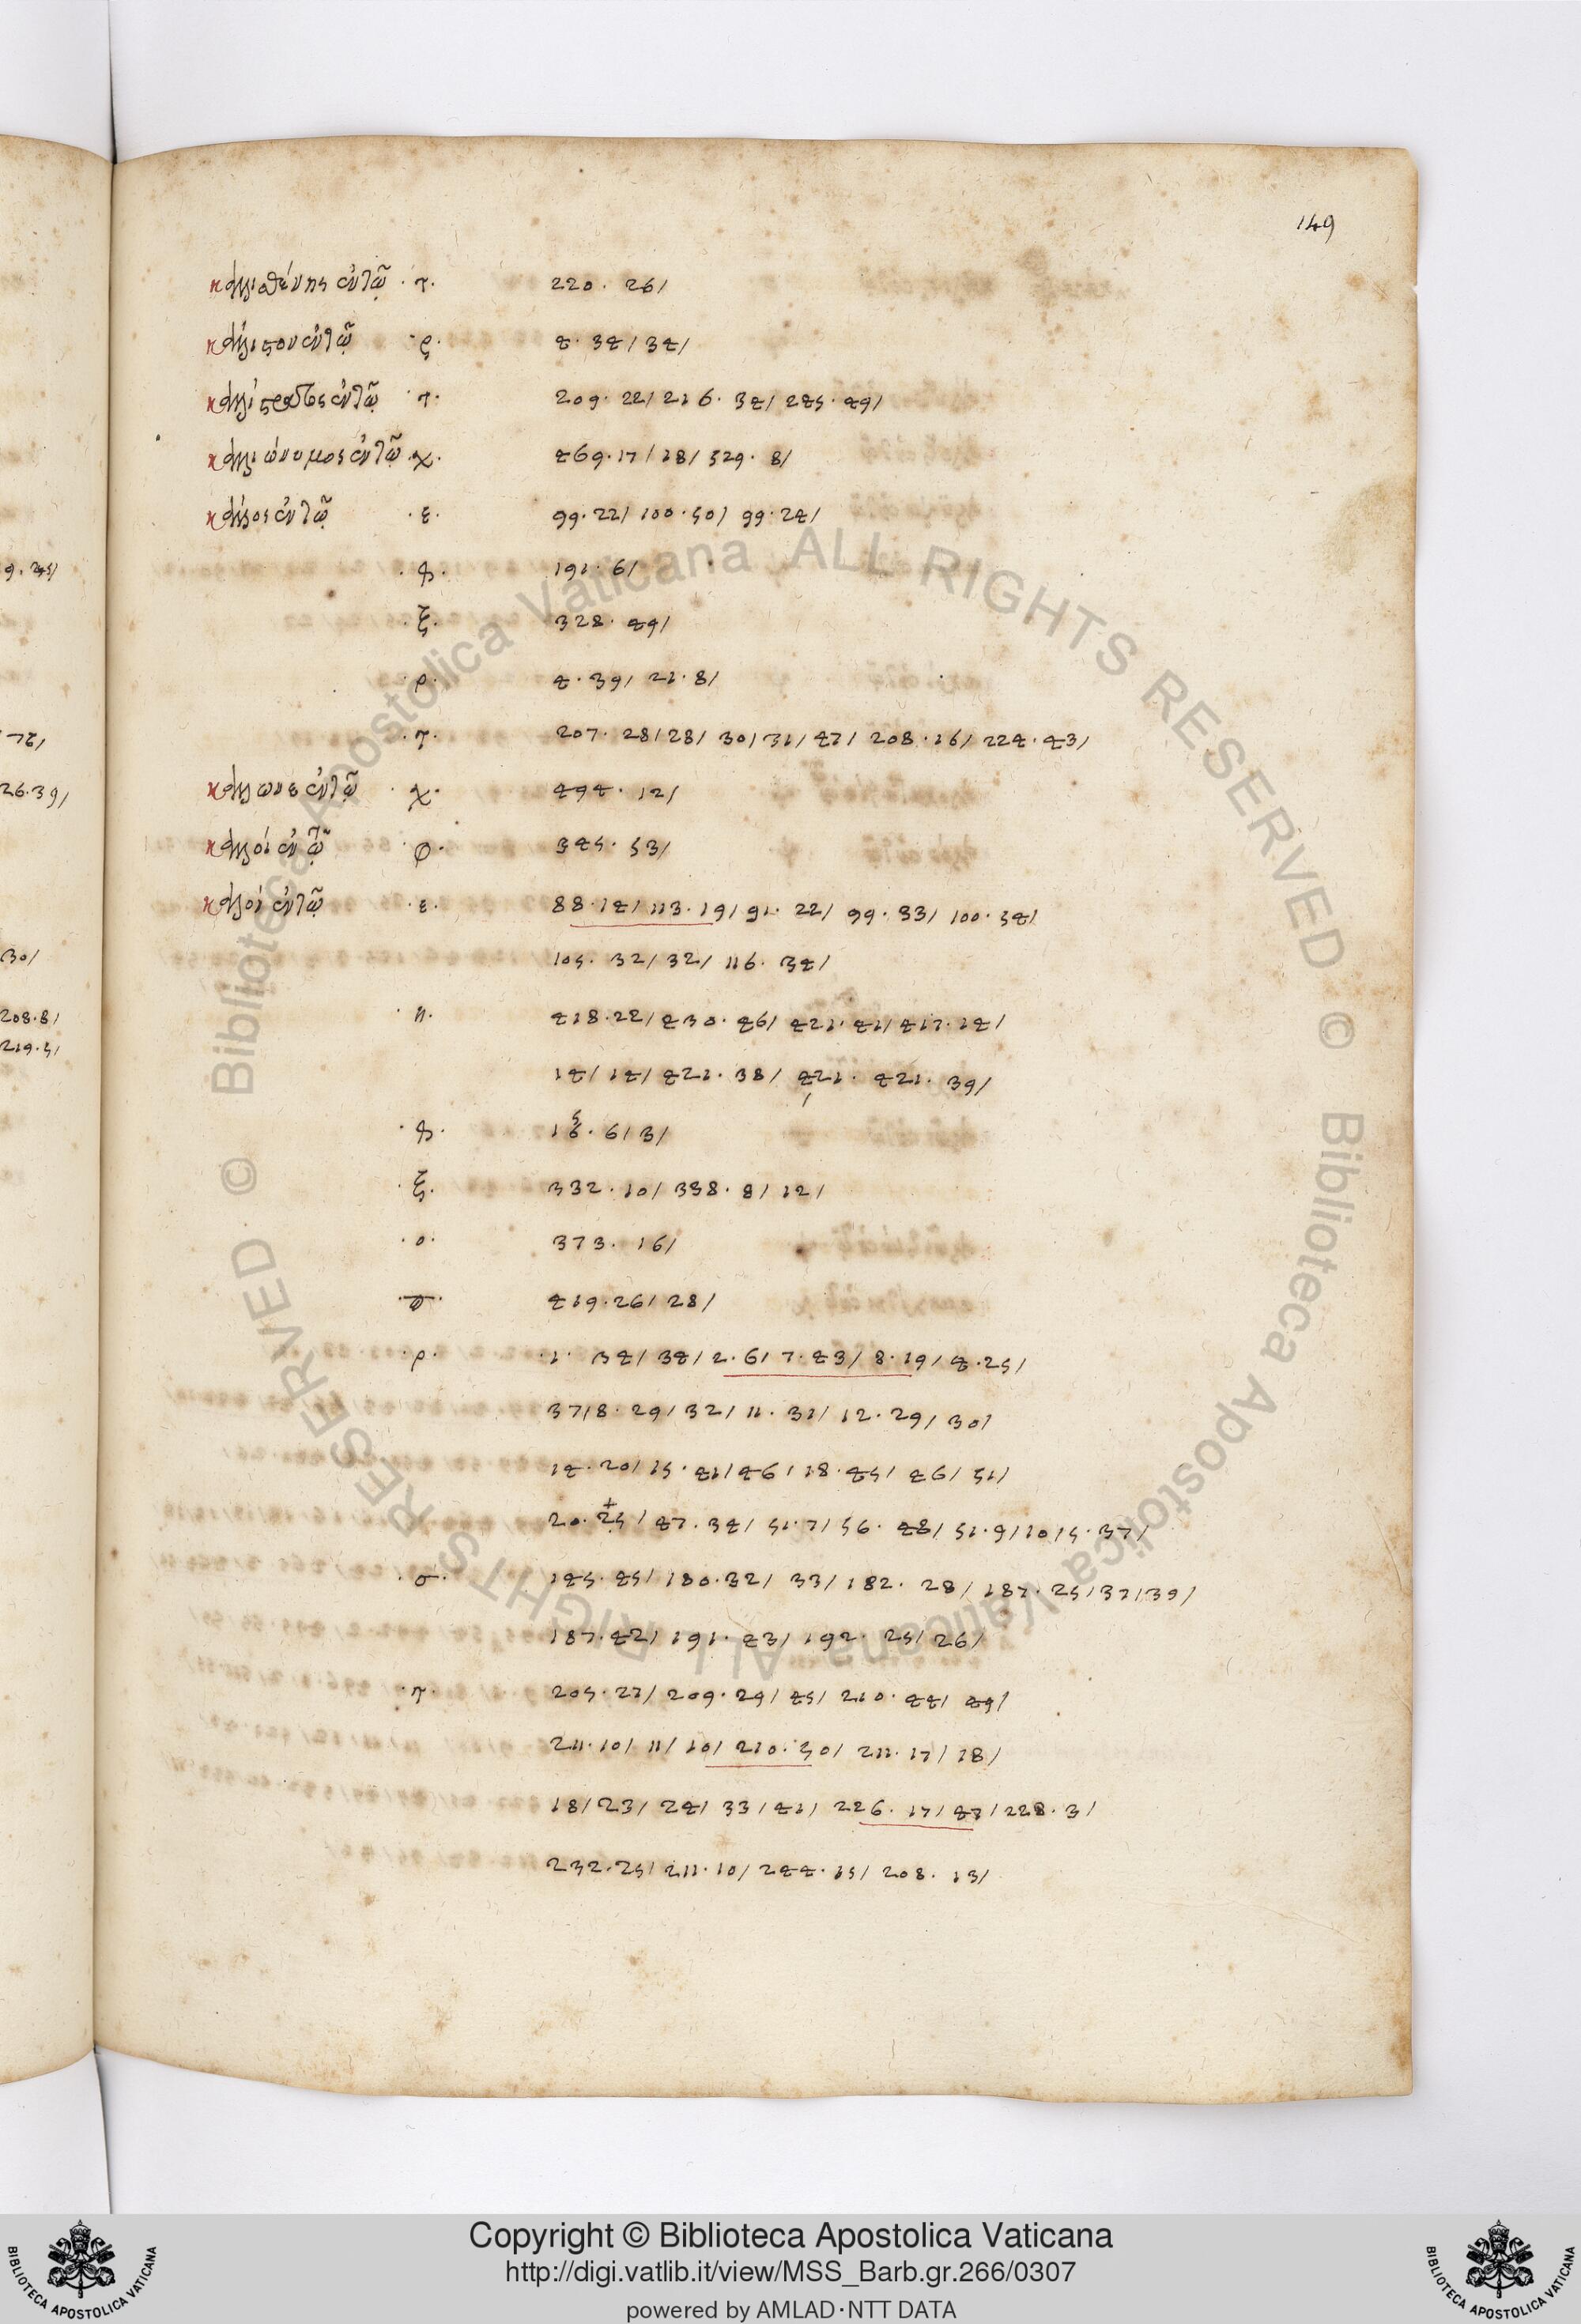 149
καλλισθένης ἐν τῷ · τ · 220 · 26/
κάλλιστον ἐν τῷ · ρ · 4 · 34/ 34/
ἐν τῷ · τ · 209 · 22/ 216 · 34/ 245 · 49/
καλλιώνυμος ἐν τῷ · χ · 469 · 17/ 18/ 529 · 8/
κάλλος ἐν τῷ · ε · 99 · 22/ 100 · 50/ 99 · 24/
191 · 6/
· ξ · 328 · 49/
· ρ · 4 · 39/ 21 · 8/
· τ · 207 · 28/ 28/ 30/ 31/ 47/ 208 · 16/ 224 · 43/
ἐν τῷ · χ · 494 · 12/
ἐν τῷ · φ · 345 · 53/
ἐν τῷ · ε · 88 · 14/ 113 · 19/ 91 · 22/ 99 · 33/ 100 · 34/
105 · 32/ 32/ 116 · 34/
· π · 418 · 22/ 430 · 46/ 421 · 41/ 417 · 14/
14/ 14/ 421 · 38/ 421 · 421 · 39/
6/ 3/
· ξ · 332 · 10/ 338 · 8/ 12/
· ο · 373 · 16/
419 · 26/ 28/
· ρ · 1 · 34/ 34/ 2 · 6/ 7 · 43/ 8 · 19/ 4 · 25/
37/ 8 · 29/ 32/ 11 · 31/ 12 · 29/ 30/
14 · 20/ 15 · 41/ 46/ 18 · 45/ 46/ 51/
20 · 25/ 47 · 34/ 51 · 7/ 56 · 48/ 51 · 9/ 10/ 5 · 37/
· σ · 145 · 45/ 180 · 32/ 33/ 182 · 28/ 187 · 25/ 37/ 39/
187 · 42/ 191 · 43/ 192 · 25/ 26/
· τ · 205 · 27/ 209 · 29/ 45/ 210 · 44/ 49/
211 · 10/ 11/ 10/ 210 · 50/ 211 · 17/ 18/
18/ 23/ 24/ 33/ 41/ 226 · 17/ 47/ 228 · 3/
232 · 25/ 211 · 10/ 244 · 15/ 208 · 13/
9 · 45/
26 · 39/
30/
208 · 8/
219 · 5/
© Biblioteca Apostolica Vaticana ALL RIGHTS RESERVED © Biblioteca Apostolica Vaticana ALL RIGHTS RESERVED
Copyright © Biblioteca Apostolica Vaticana
http://digi.vatlib.it/view/MSS_Barb.gr.266/0307
powered by AMLAD·NTT DATA
BIBLIOTECA APOSTOLICA VATICANA
BIBLIOTECA APOSTOLICA VATICANA